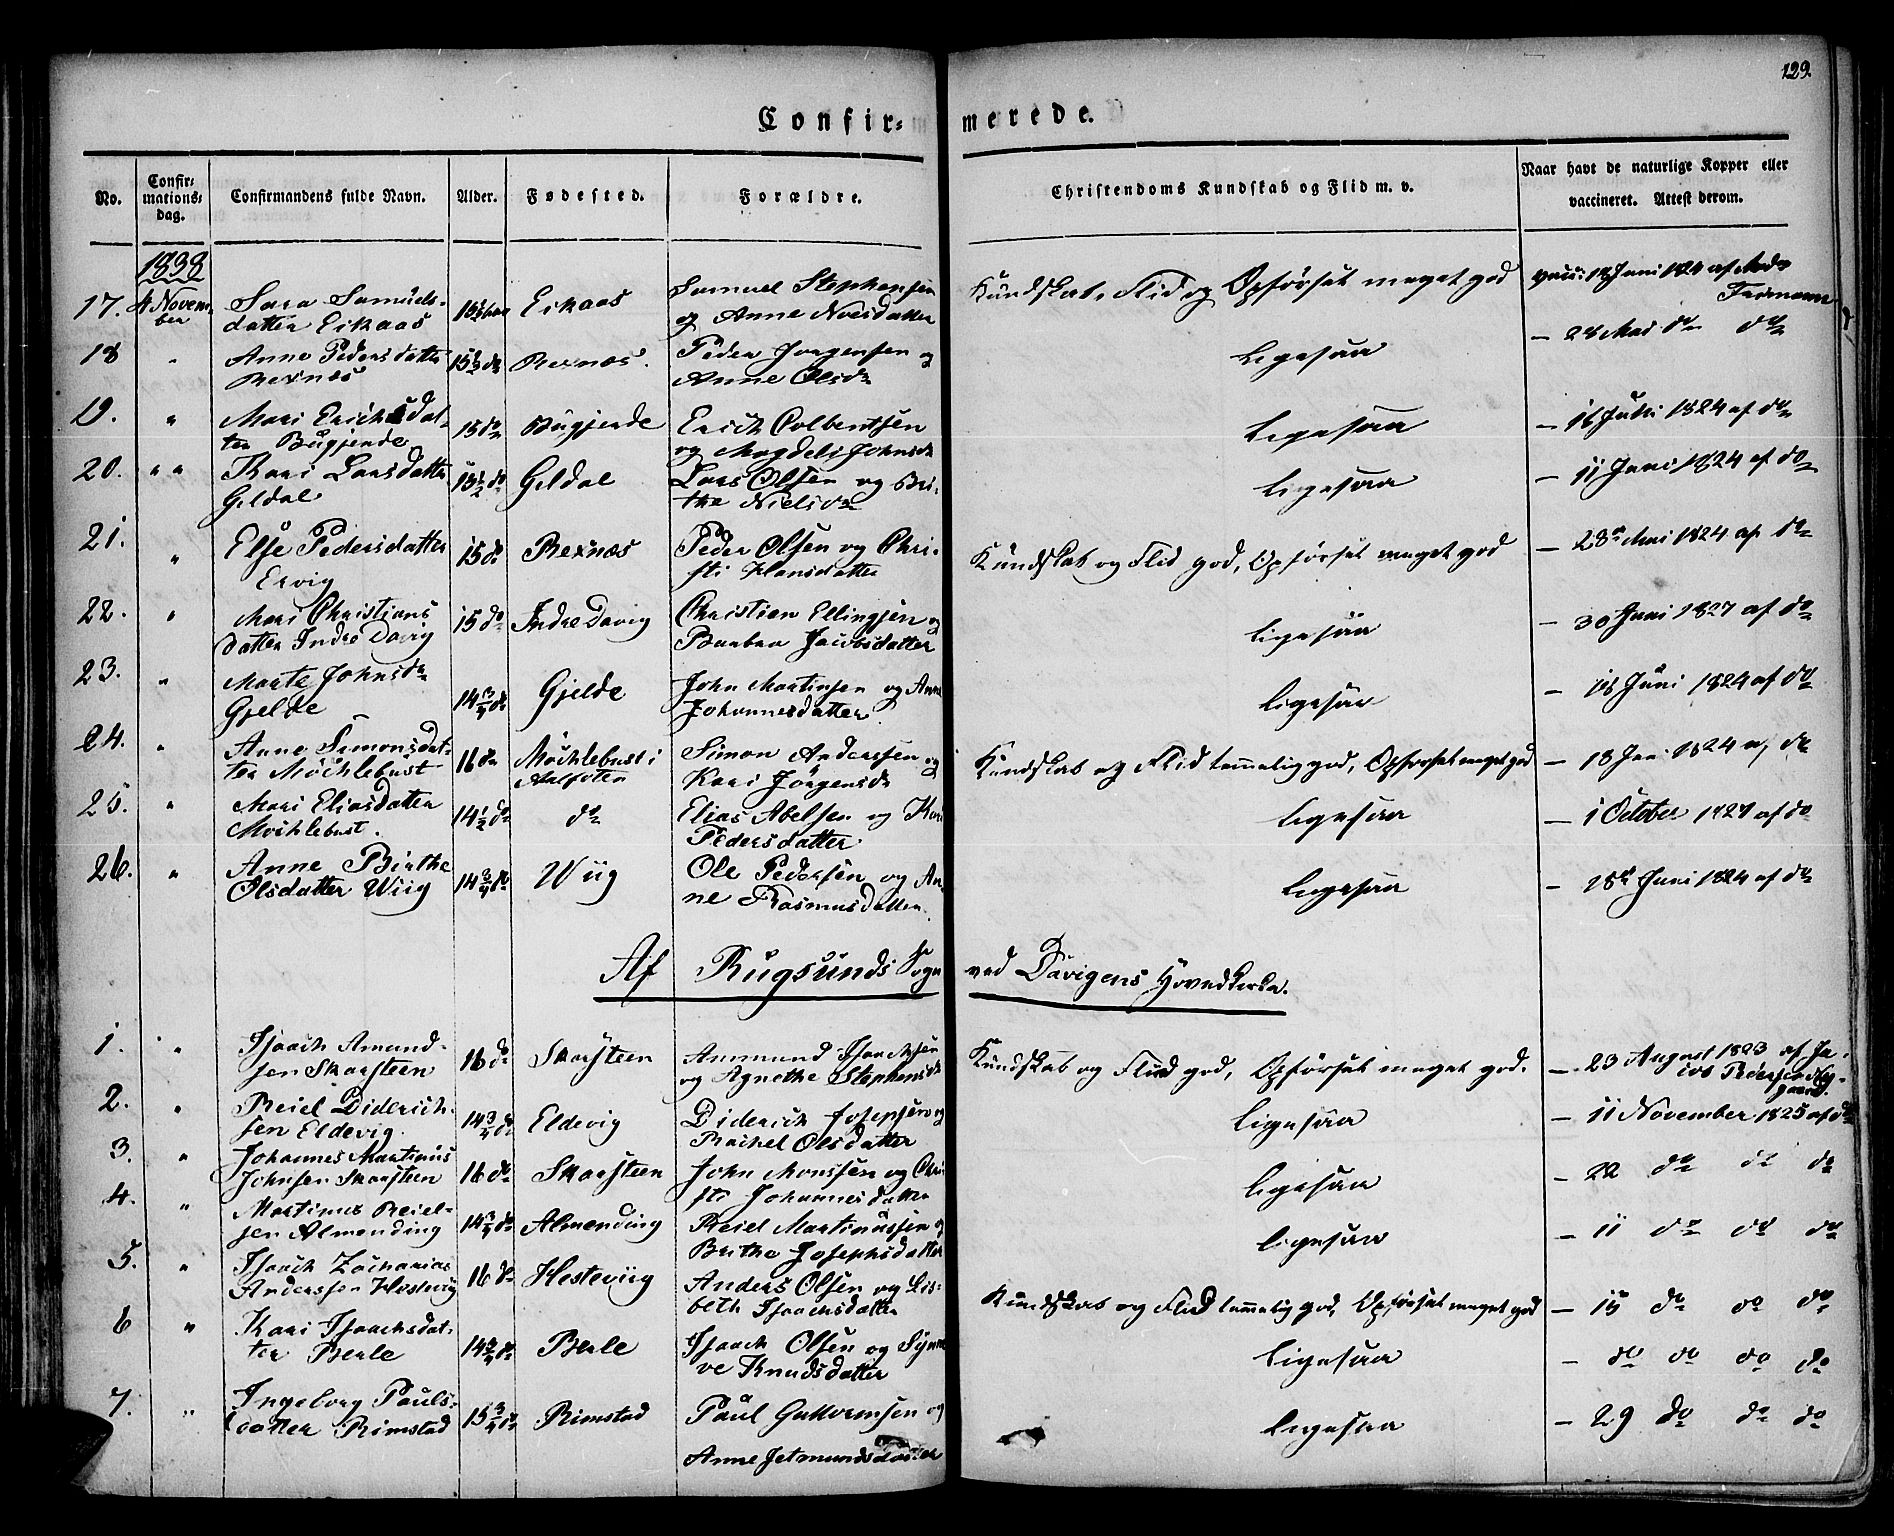 129.
Confir= merede.
No.
Confir=
mations=
dag.
Confirmandens fulde Navn.
Alder.
Fødested.
Forældre.
Christendoms Kundskab og Flid m. v.
Naar havt de naturlige Kopper eller
vaccineret. Attest derom.
1838
17. 4 Novem=
ber
Sara Samuels-
datter Eikaas
Eikaas
Samuel Stephensen
og Anne Noesdatter
Kundskab, Flid og Opførsel meget god
18 Juni 1824 af
18 " Anne Pedersdatter
Rexnæs
15½ do Rexnæs.
Peder Jørgensen og
Anne Olsdr
Ligesaa
— 28 Mai do do
19. " Mari Erichsdat-
ter Bugjerde
15 do Bugjerde
Erich Colbentsen
og Magdeli Johnsdr
Ligesaa
— 16 Juni 1824 af do
20. " " Kari Larsdatter
Gildal
15½ do Gildal
Lars Olsen og Bri-
the Nielsdr
Ligesaa
— 11 Juni 1824 af do
21. " Else Pedersdatter
Ervig
15 do Rexnæs
Peder Olsen og Chri-
sti Hansdatter
Kundskab og Flid god, Opførsel meget god
— 28de Mai 1824 af do
22. " Mari Christians
datter Indre Davig
15 do Indre Davig
Christien Ellingsen og
Barbra Jacobsdatter
Ligesaa
— 30 Juni 1827 af do
23. " Marte Johnsdr
Gjelde
14¾ do Gjelde
John Martinsen og Anne
Johannesdatter.
Ligesaa
— 18 Juni 1824 af do
24. " Anne Simonsdat-
ter Mochlebust
16 do Mochlebust i
Aalfoten
Simon Anderssen og
Kari Jørgensdr
Kundskab og Flid temmelig god, Opførsel meget god
— 18 Juni 1824 af do
25. " Mari Eliasdatter
Mochlebust.
14½ do do
Elias Abelsen og Kari
Pedersdatter
Ligesaa
— 1 October 1824 af do
26. " Anne Birthe
Olsdatter Wiig
14¾ do Wiig
Ole Pedersen og An-
ne Rasmusdatter.
Ligesaa
— 28de Juni 1824 af do
Af Rugsunds Sogn ved Davigens Hovedkirke.
1. " Isaach Amund-
sen Skarsteen
16 do Skarsteen
Ammund Isaachsen
og Agnethe Stephensdr
Kundskab og Flid god, Opførsel meget god.
— 23 August 1823 af Ja-
cob Pedersen
2. " Reiel Diderich-
sen Eldevig.
14¾ do Eldevig
Diderich Josepsen og
Rachel Olsdatter
Ligesaa
— 11 November 1825 af do
3. " Johannes Martinus
Johnsen Skarsteen
16 do Skarsteen
John Monssen og Chri
sti Johannesdatter
Ligesaa
— 22 do do do
4. " Martinus Reiel-
sen Almending
14¾ do Almending
Reiel Martinussen og
Birthe Josephsdatter
Ligesaa
— 11 do do do
5. " Isaach Zacharias
Anderssen Hestevig
16 do Hesteviig
Anders Olsen og Lis-
beth Isaachsdatter
Kundskab og Flid temmelig god, Opførsel meget god
— 15 do do do
6 " Kari Isaachsdat-
ter Berle
14¾ do Berle
Isaach Olsen og Synne
ve Knudsdatter
Ligesaa
— do do do do
7. " Ingeborg Pauls-
datter Rimstad
15¾ do Rimstad
Paul Guttormsen og
Anne Jetmundsdatter
Ligesaa
— 29 do do do